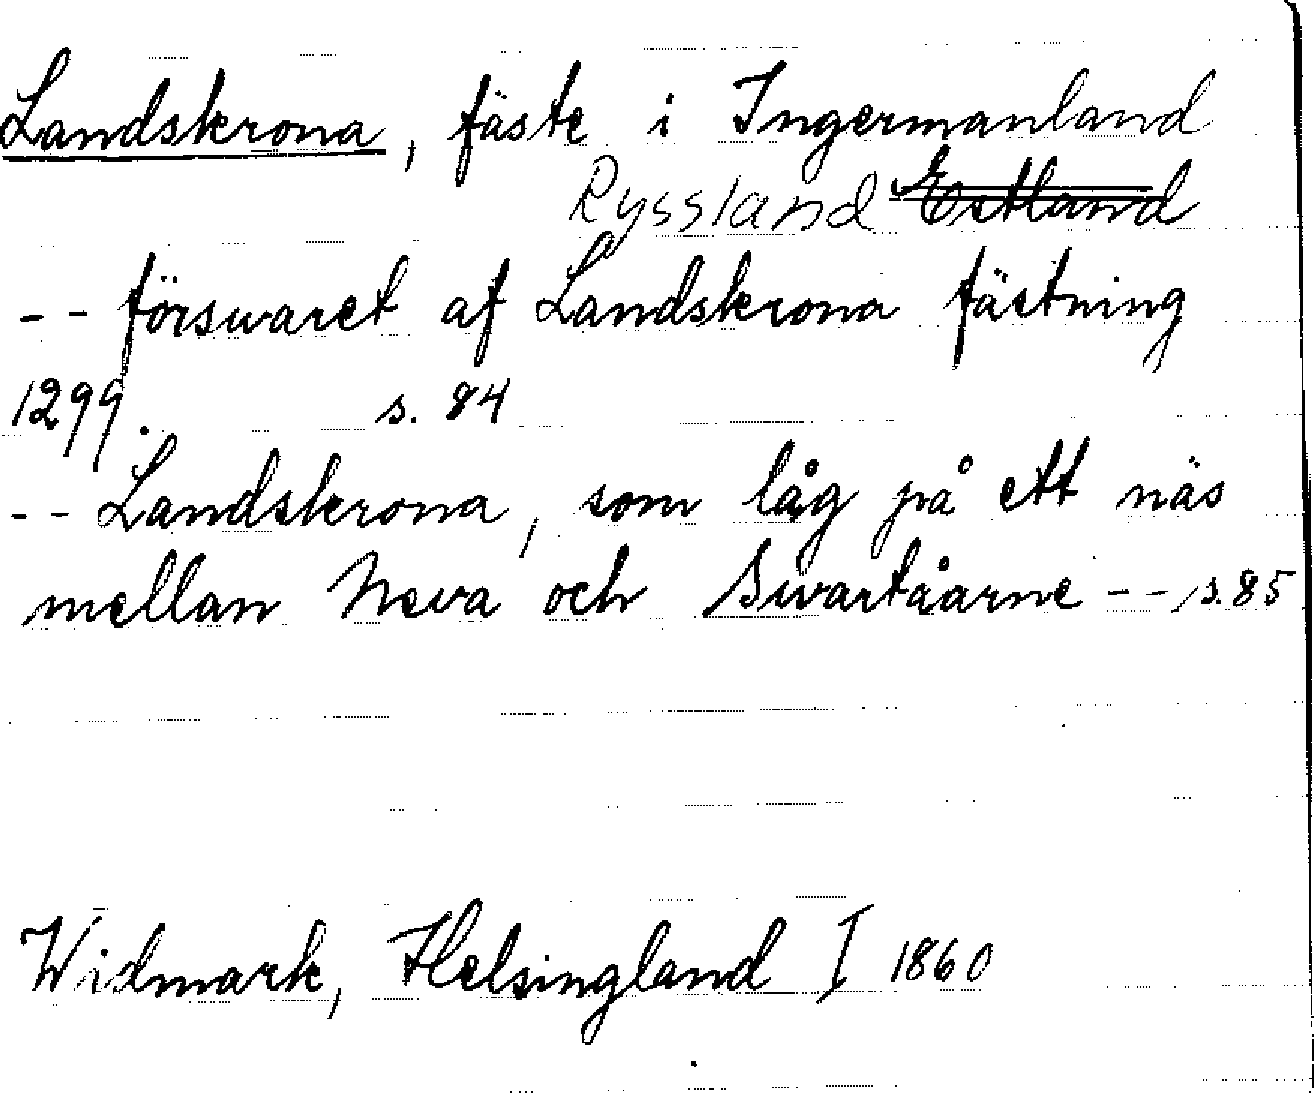 Landskrona, fäste i Ingermanland
Ryssland Estland
-- förswaret af Landskrona fästning
1299. s. 84
-- Landskrona, som låg på ett näs
mellan Neva och Swartåarne -- s. 85
Widmark, Helsingland I 1860